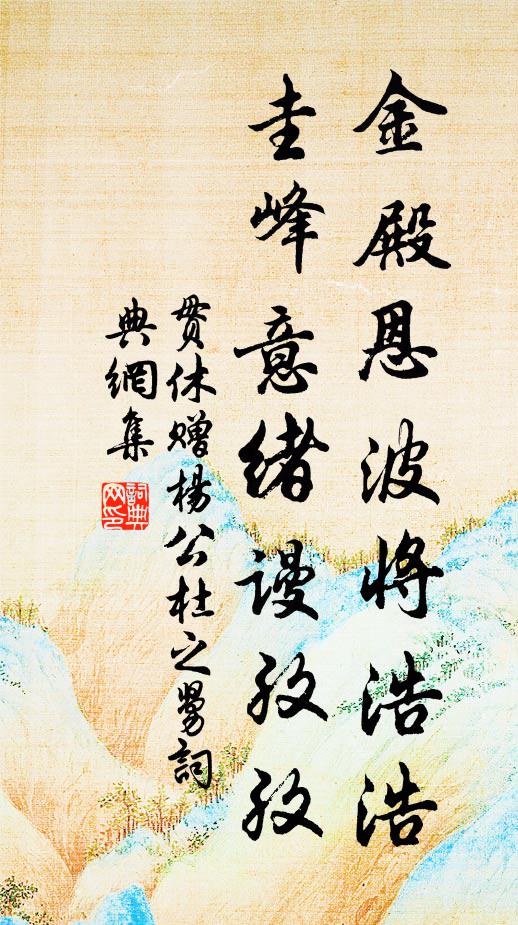 金殿恩波将浩浩
圭峰意绪谩孜孜
贯休赠杨公杜之舅词
典網集
詞典網印